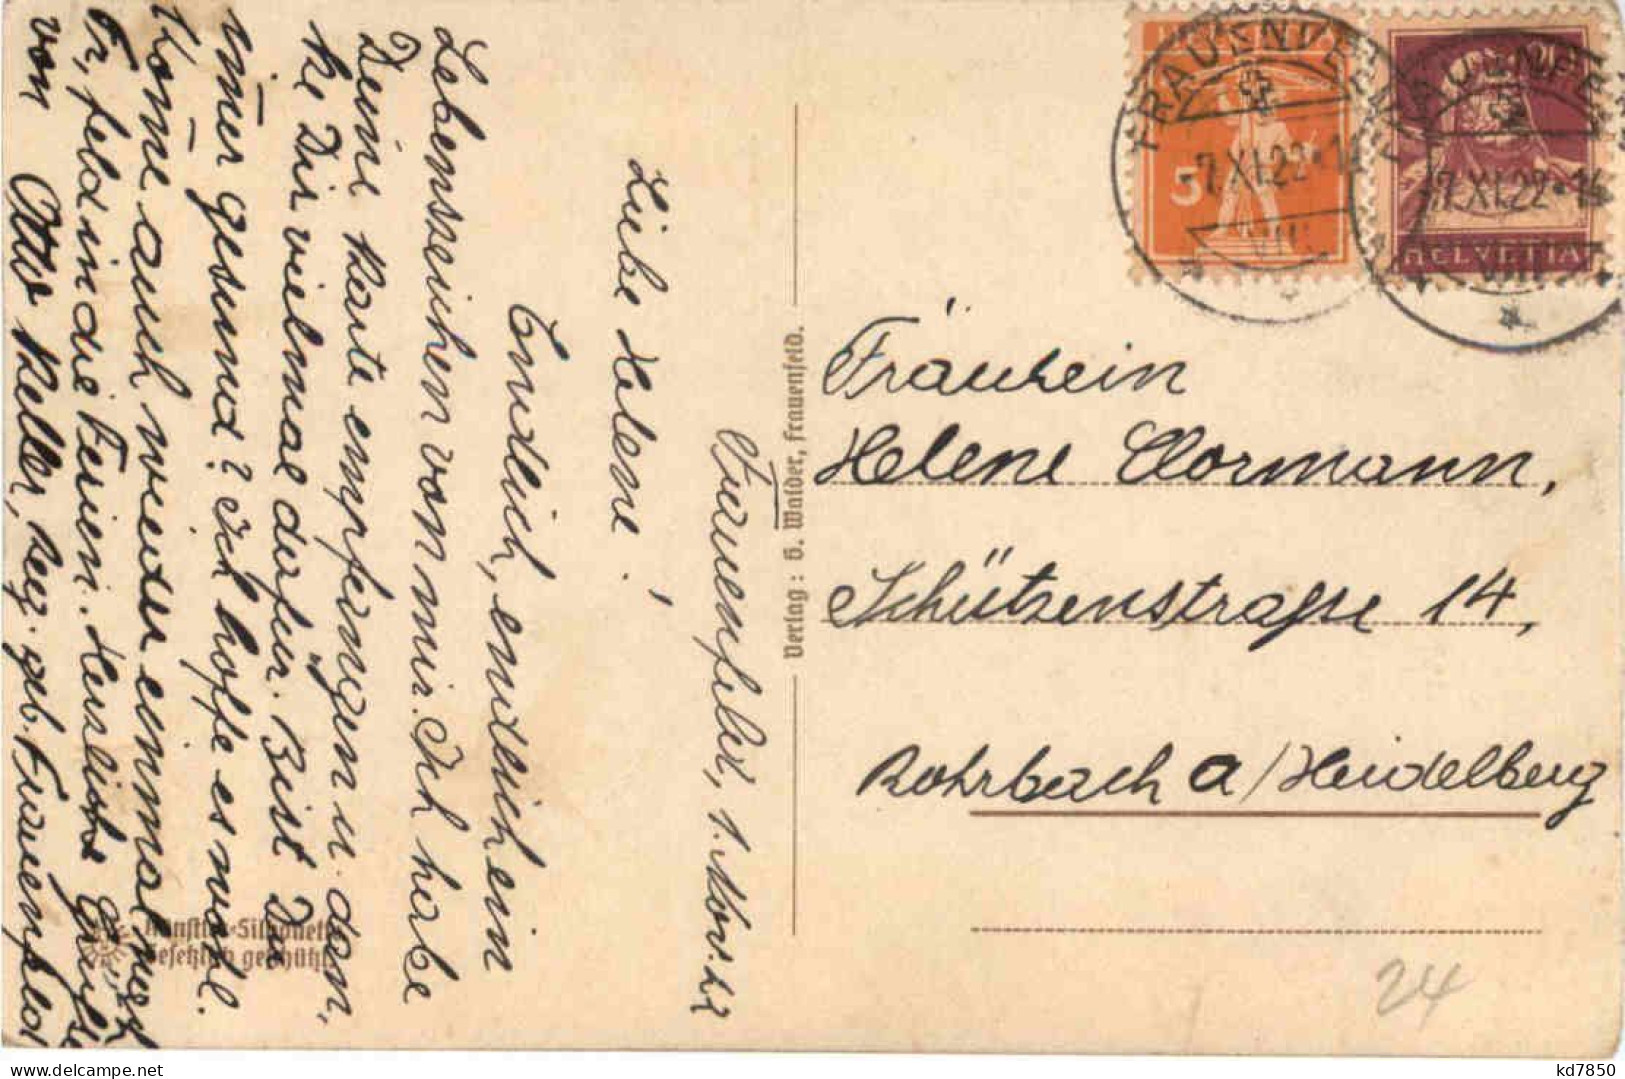 Frauenfeld, 1. Nov. 22
Liebe Helene!
Endlich, endlich ein
Lebenszeichen von mir. Ich habe
Deine Karte empfangen u. dan̄
ke Dir vielmal dafür. Bist Du
im̄er gesund? Ich hoffe es wohl.
Kom̄e auch wieder einmal nach
Fr,feld in die Ferien. Herzliche Grüße
von Otto Keller, Reg. geb. Frauenfeld
Verlag: H. Walder, Frauenfeld.
Künstler-Silhouette
Gesetzlich geschützt.
HELVETIA
5
FRAUENFELD
-7.XI.22-14
VIII
20
HELVETIA
FRAUENFELD
-7.XI.22-14
VIII
Fräulein
Helene Clormann,
Schützenstraße 14,
Rohrbach a/Heidelberg
24
kd7850